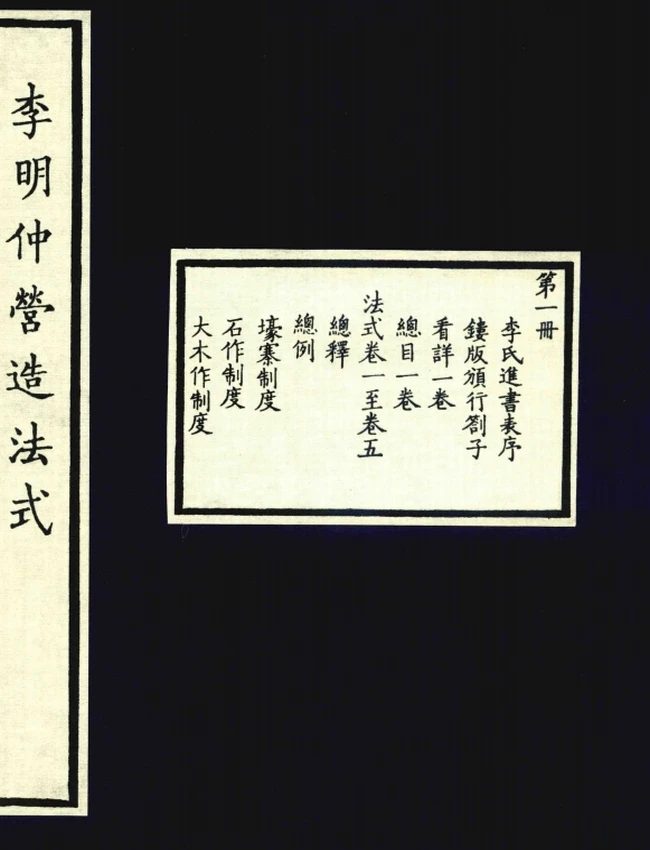 李明仲營造法式
第一冊
李氏進書表序
鏤版頒行劄子
看詳一卷
總目一卷
法式卷一至卷五
總釋
總例
壕寨制度
石作制度
大木作制度